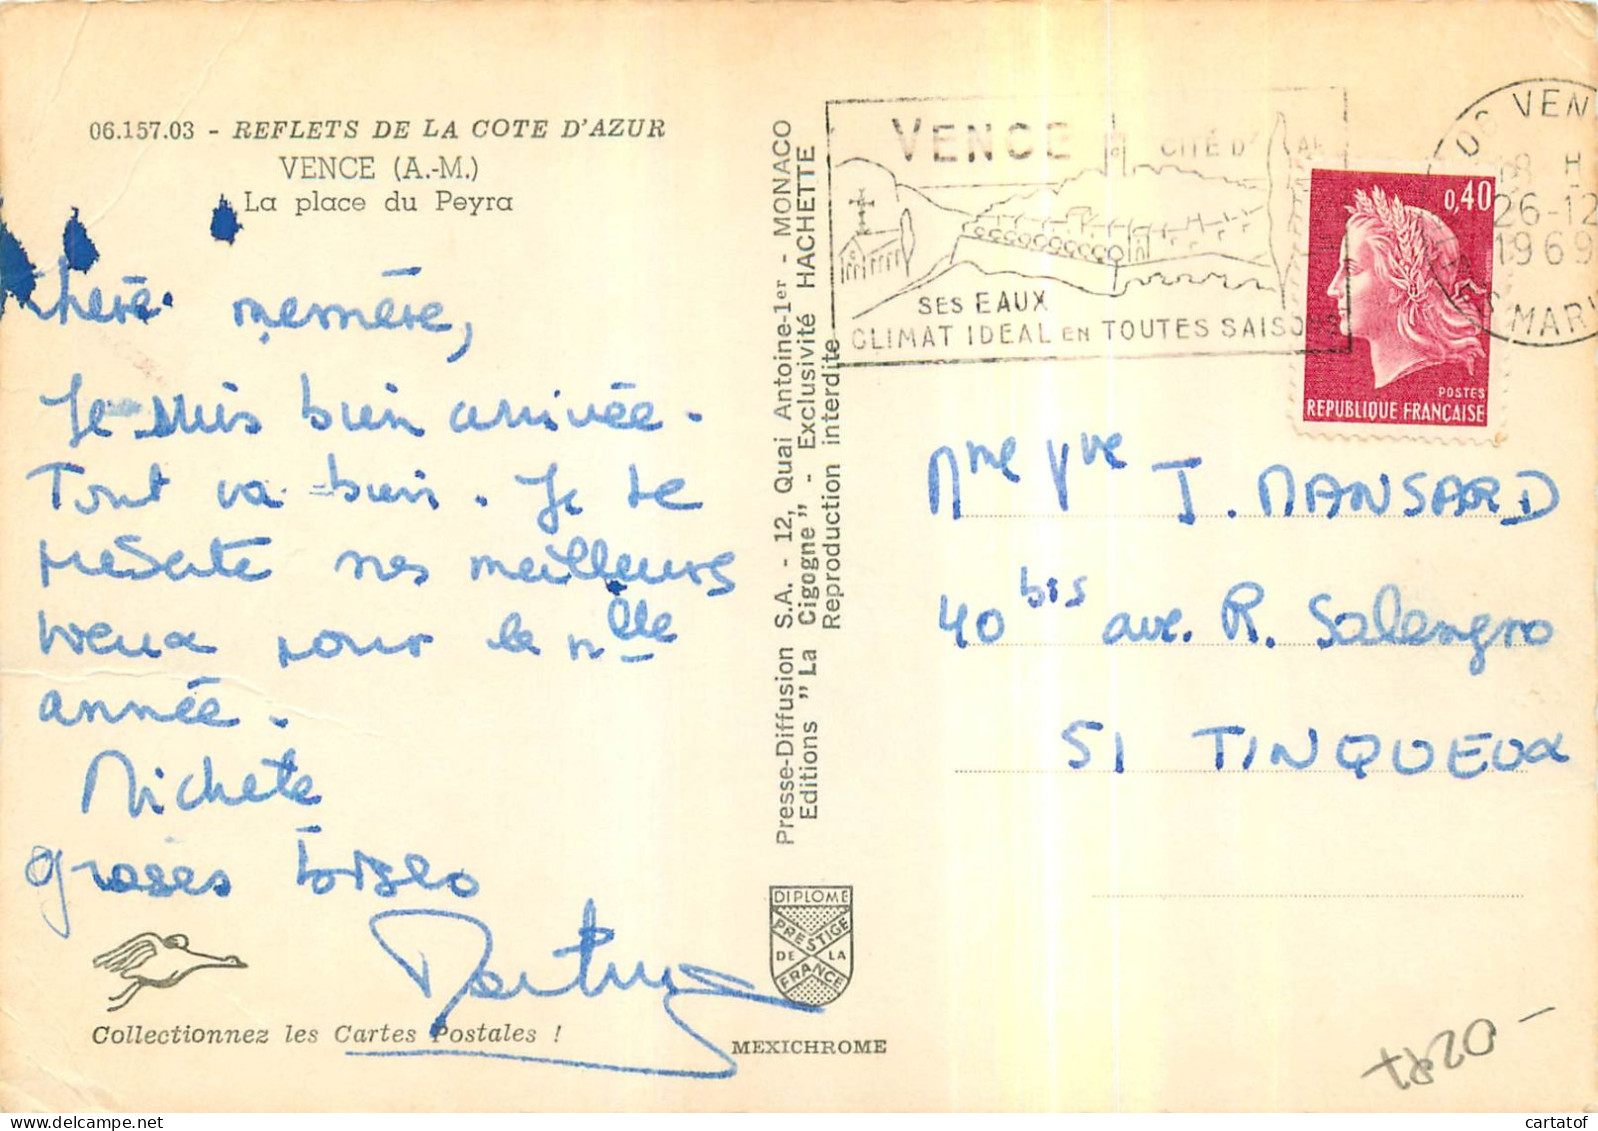 06.157.03 - REFLETS DE LA COTE D'AZUR
VENCE (A.-M.)
La place du Peyra
chère mémère,
Je suis bien arrivée.
Tout va bien. Je te
présente mes meilleurs
vœux pour la nlle
année.
Michele
groses bises
Collectionnez les Cartes Postales !
Presse-Diffusion S.A. - 12, Quai Antoine-1er - MONACO
Editions "La Cigogne" - Exclusivité HACHETTE
Reproduction interdite
DIPLOME
PRESTIGE
DE LA
FRANCE
MEXICHROME
VENCE CITÉ D'AR
SES EAUX
CLIMAT IDEAL EN TOUTES SAISONS
06 VEN
18 H
26-12
1969
ALPES MARI
0,40
POSTES
REPUBLIQUE FRANÇAISE
Mme Vve J. MANSARD
40 bis ave. R. Salengro
51 TINQUEUX
cartatof